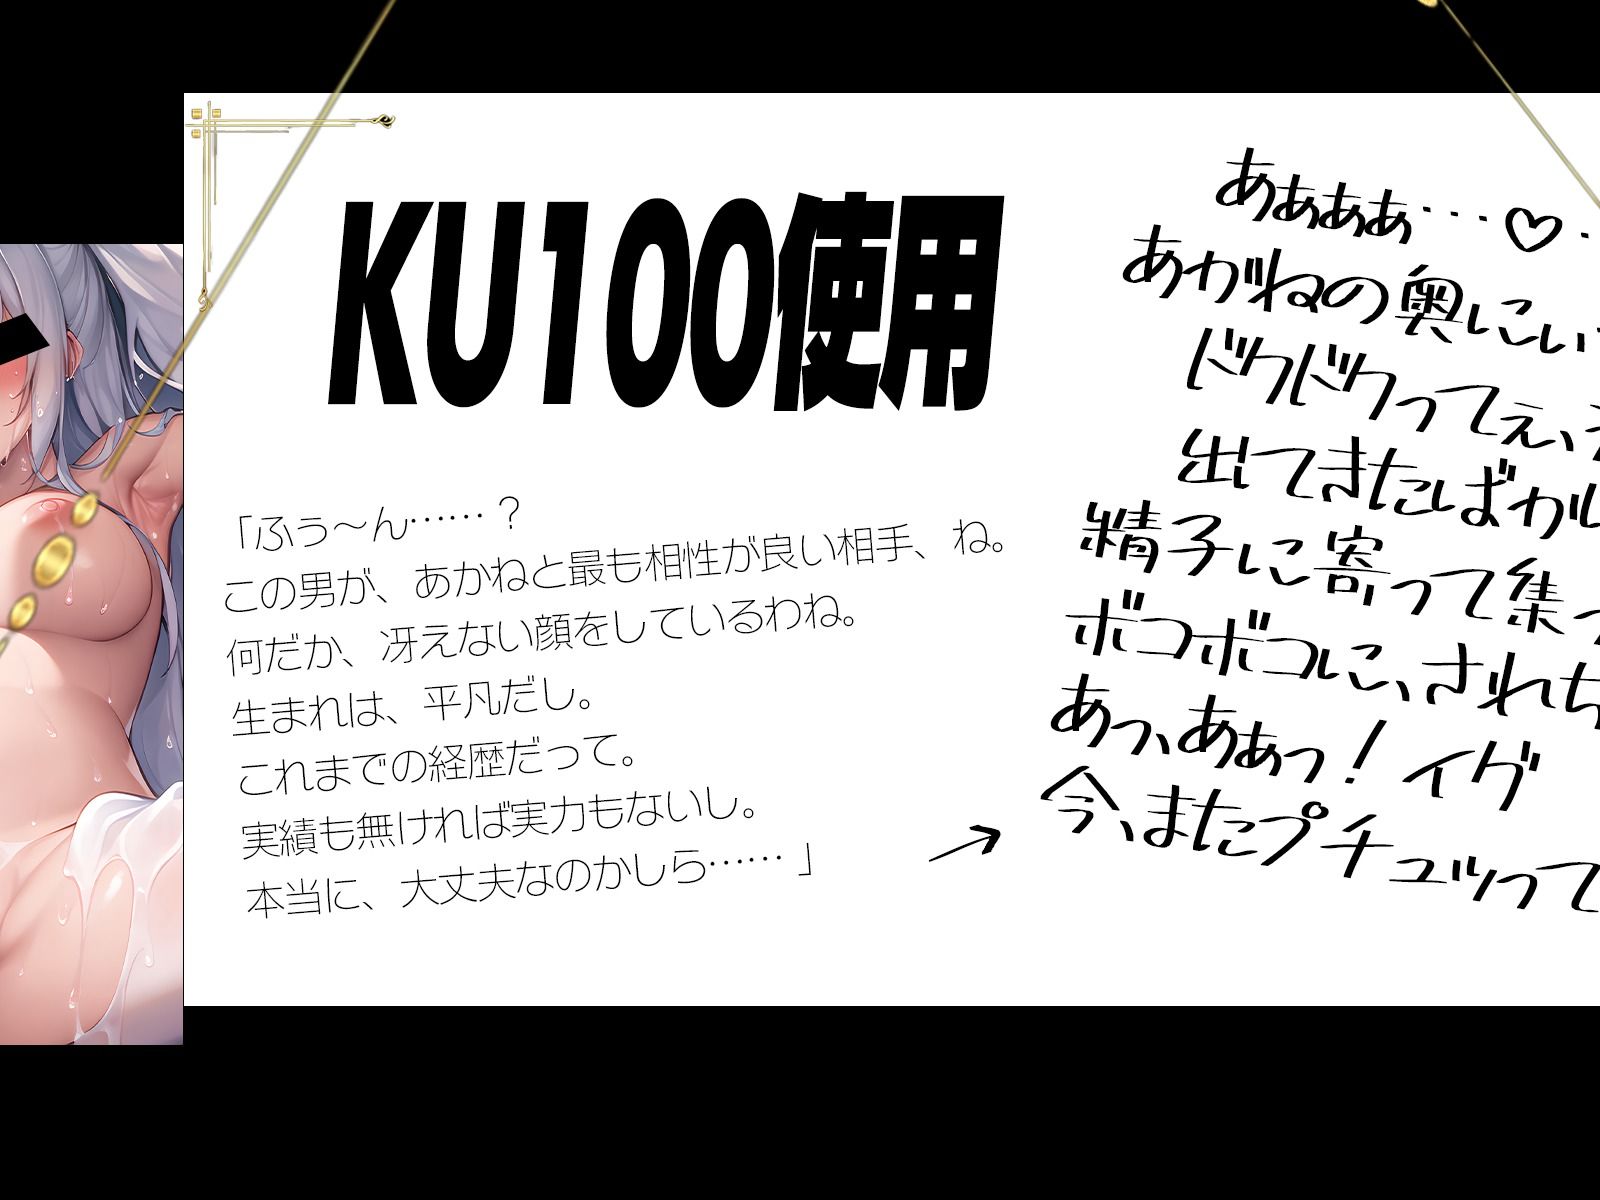 KU100使用
「ふぅ〜ん……？
この男が、あかねと最も相性が良い相手、ね。
何だか、冴えない顔をしているわね。
生まれは、平凡だし。
これまでの経歴だって。
実績も無ければ実力もないし。
本当に、大丈夫なのかしら……」
→
ああああ…♡
あがねの奥にい
ドクドクってぇ、
出てきたばかり
精子に寄って集っ
ボコボコに、されち
あっ、あぁっ！イグ
今、またプチュッって